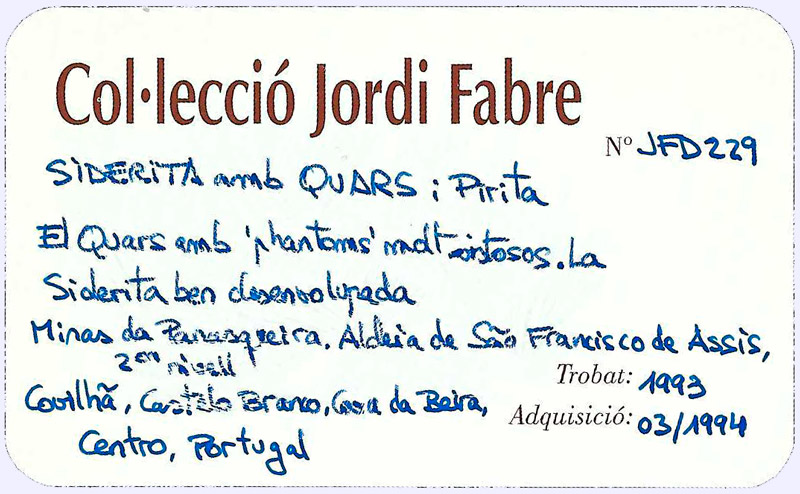 Col·lecció Jordi Fabre
Nº JFD229
SIDERITA amb QUARS i Pirita
El Quars amb 'phantoms' molt vistosos. La
Siderita ben desenvolupada
Minas da Panasqueira, Aldeia de São Francisco de Assis,
2on nivell
Trobat: 1993
Covilhã, Castelo Branco, Cova da Beira,
Adquisició: 03/1994
Centro, Portugal